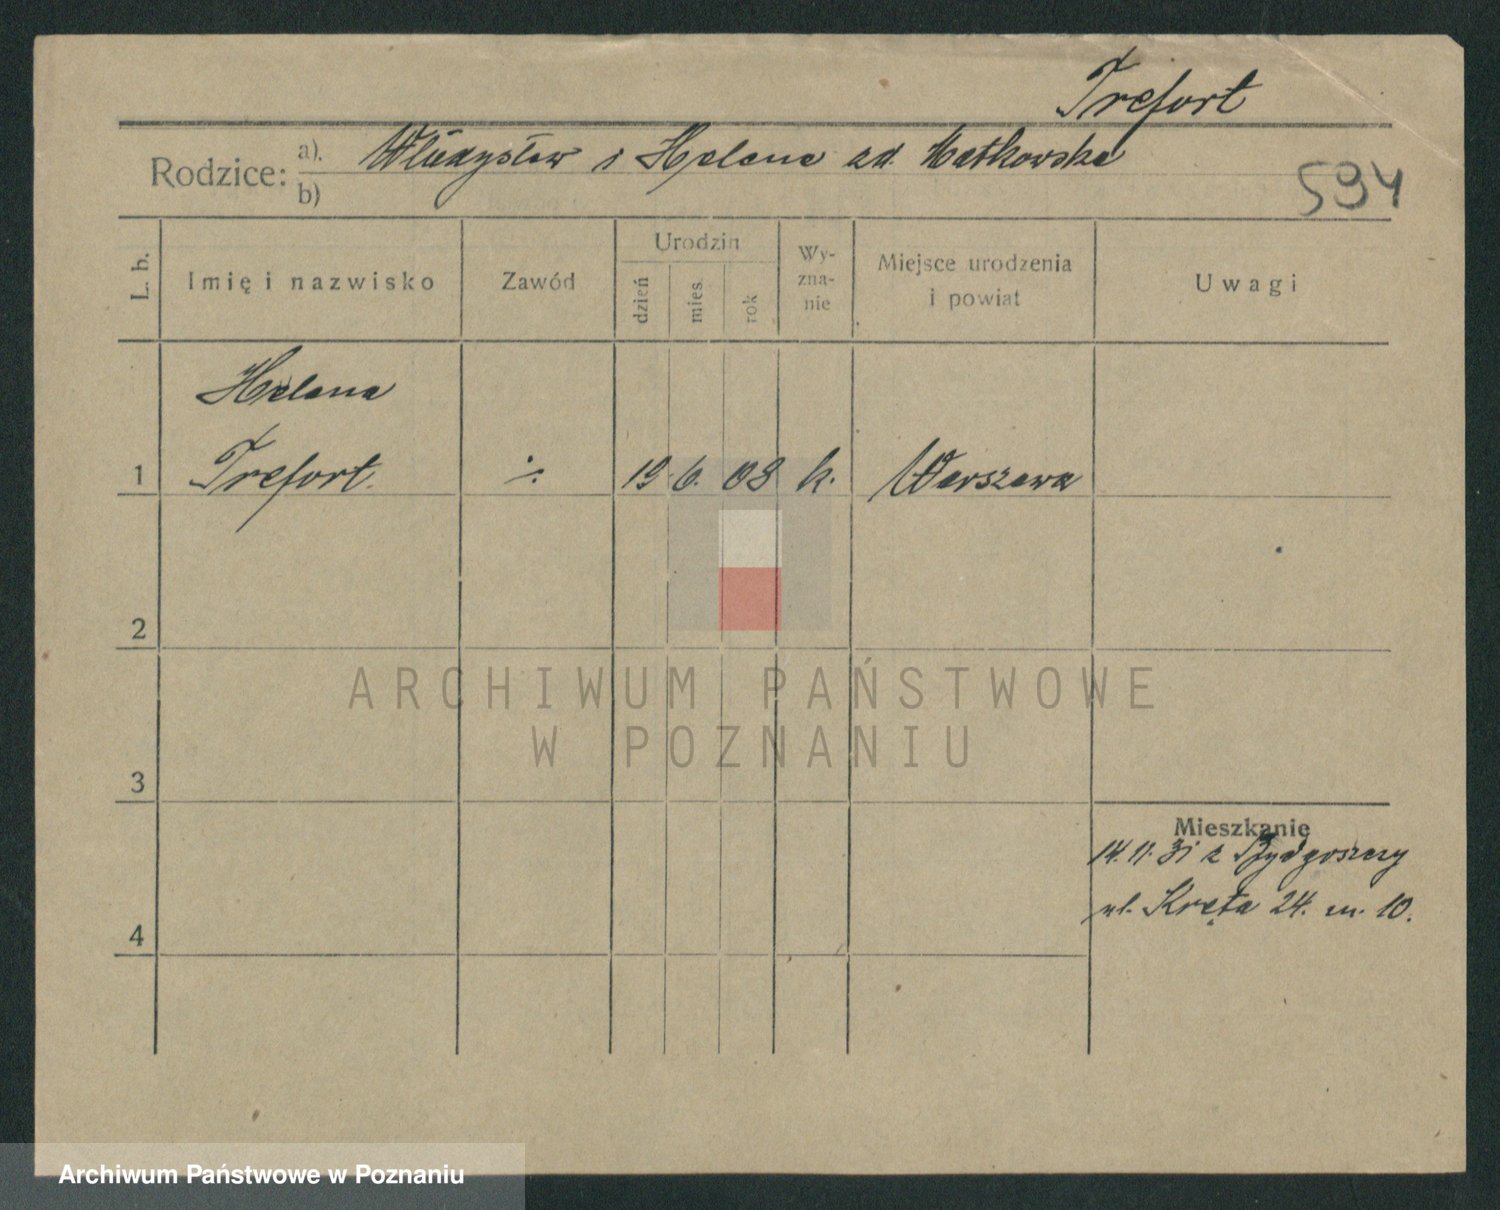 Trefort
Rodzice: a). Władysław i Helena zd. Matkowska
b)
594
L. b.
Imię i nazwisko
Zawód
Urodzin
dzień
mies.
rok
Wy-
zna-
nie
Miejsce urodzenia
i powiat
Uwagi
Helena
1 Trefort. 19 6. 08 k. Warszawa
2
ARCHIWUM PAŃSTWOWE
W POZNANIU
3
Mieszkanie
14.11.31 z Bydgoszczy
ul. Kręta 24. m. 10.
4
Archiwum Państwowe w Poznaniu